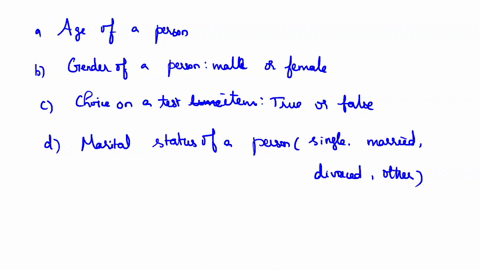 a Age of a person
b) Gender of a person: male or female
c) Choice on a test item: True or false
d) Marital status of a person ( single. married,
divorced, other)